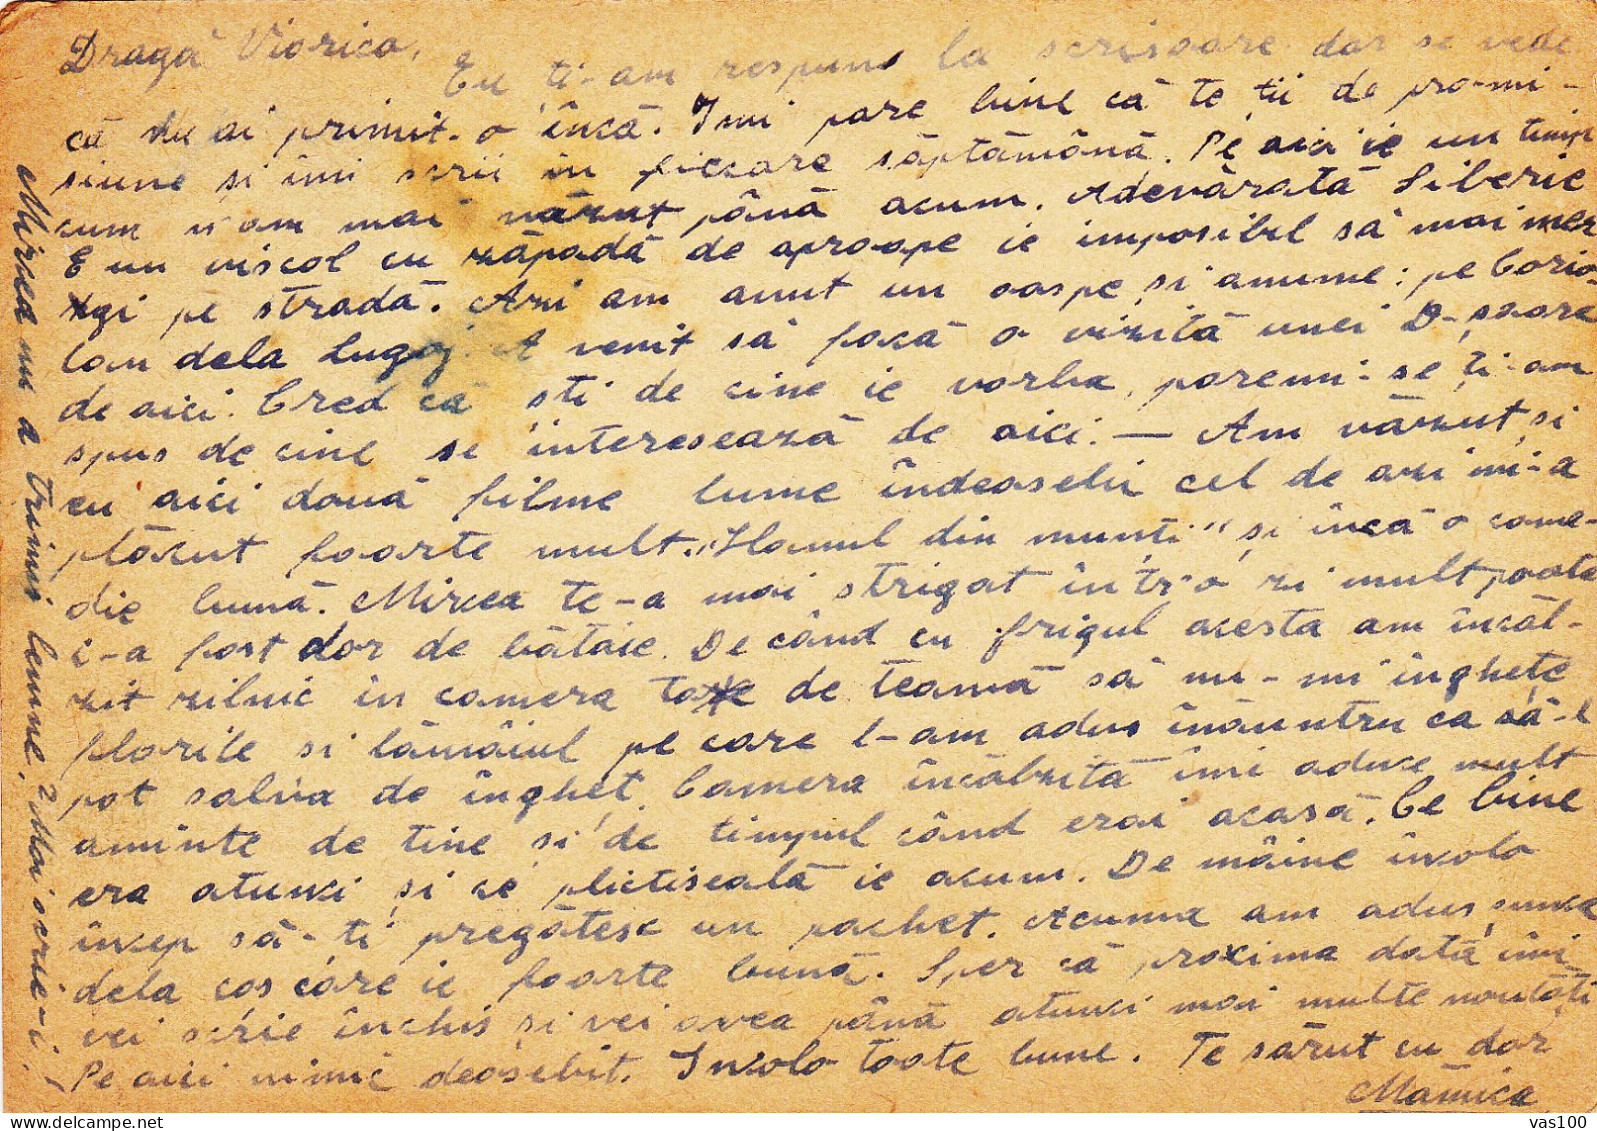 Dragă Viorica,
Eu ți-am respuns la scrisoare dar se vede
că nu ai primit-o încă. Imi pare bine că te ții de promi-
siune și îmi scrii în fiecare săptămână. Pe aici ie un timp
cum n'am mai văzut până acum. Adevărată Siberie
E un viscol cu zăpadă de aproape ie imposibil să mai mer
gi pe stradă. Azi am avut un oaspe și anume: pe Corio-
lan dela Lugoj. A venit să facă o vizită unei D-șoare
de aici. Cred că ști de cine ie vorba, paremi-se ți-am
spus de cine se interesează de aici. — Am văzut și
eu aici două filme bune îndeosebi cel de azi mi-a
plăcut foarte mult. „Hanul din munți" și încă o come-
die bună. Mircea te-a mai strigat într'o zi mult, poate
i-a fost dor de bătaie. De când cu frigul acesta am încăl-
zit zilnic în camera ta de teamă să nu-mi înghețe
florile și lămâiul pe care l-am adus înăuntru ca să-l
pot salva de îngheț. Camera încălzită îmi aduce mult
aminte de tine și de timpul când erai acasă. Ce bine
era atunci și ce plictiseală ie acum. De mâine încolo
încep să-ți pregătesc un pachet. Acuma am adus șunca
dela coș care ie foarte bună. Sper că proxima dată îmi
vei scrie închis și vei avea până atunci mai multe noutăți
Pe aici nimic deosebit. Incolo toate bune. Te sărut cu dor
Mămica
Mircea nu a trimis lemne? Mai scrie-i!
vas100